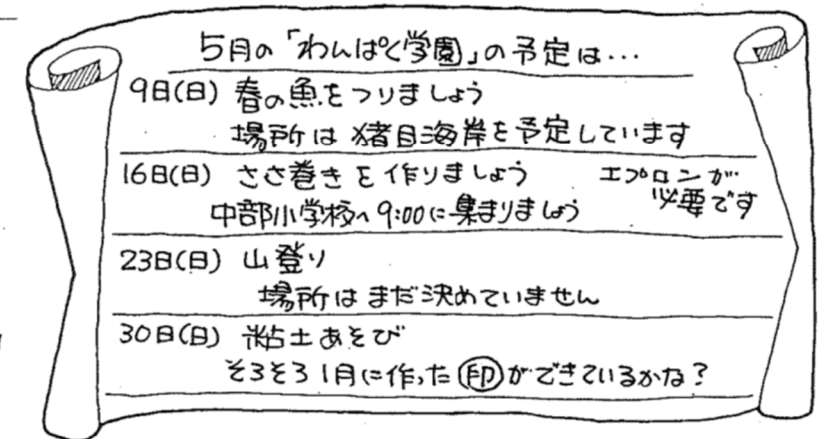 5月の「わんぱく学園」の予定は…
9日(日) 春の魚をつりましょう
場所は猪目海岸を予定しています
16日(日) ささ巻きを作りましょう エプロンが
必要です
中部小学校へ9:00に集まりましょう
23日(日) 山登り
場所はまだ決めていません
30日(日) 粘土あそび
そろそろ1月に作った㊞ができているかな?